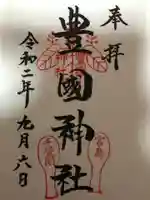 奉拝
豊國神社
令和二年九月六日